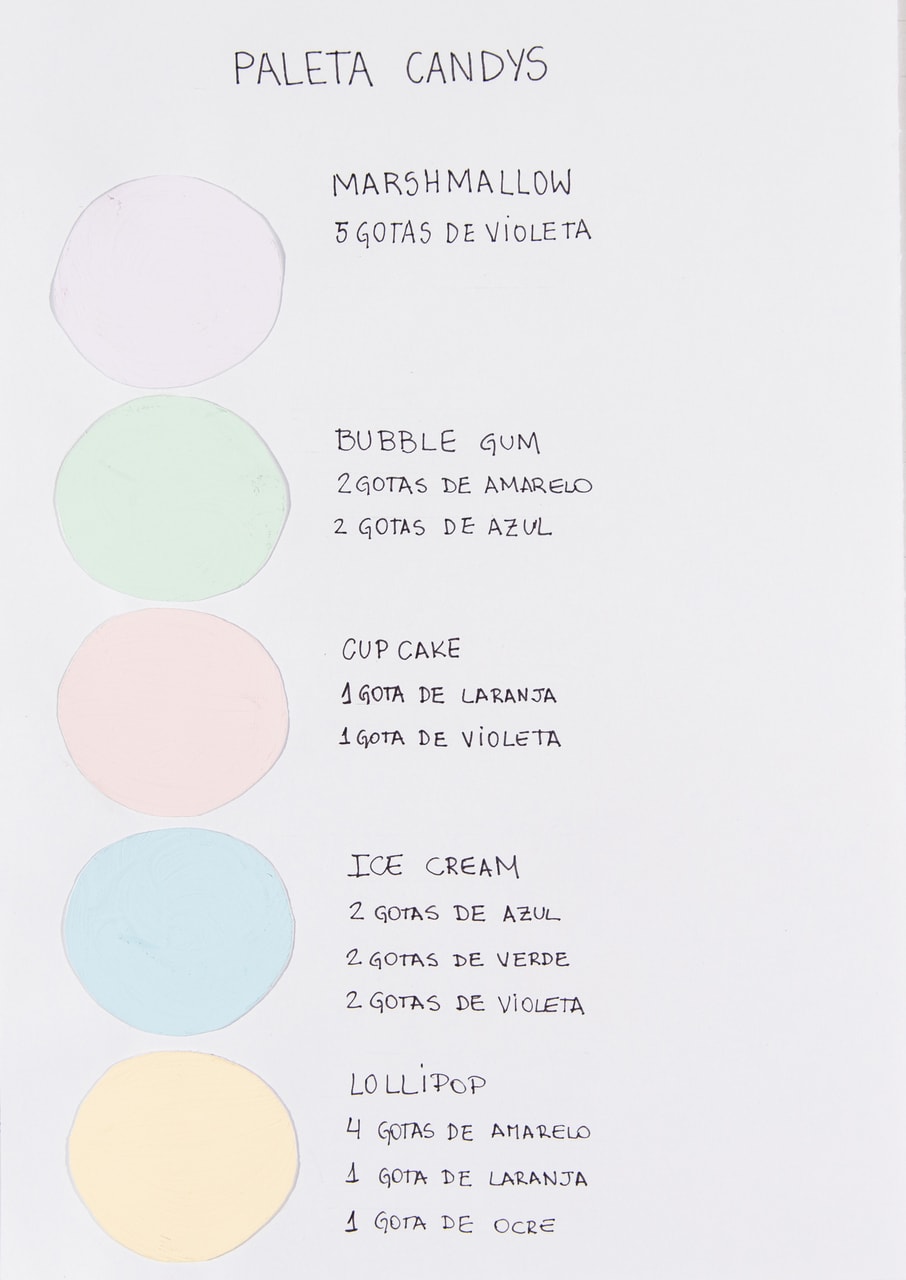 PALETA CANDYS
MARSHMALLOW
5 GOTAS DE VIOLETA
BUBBLE GUM
2 GOTAS DE AMARELO
2 GOTAS DE AZUL
CUP CAKE
1 GOTA DE LARANJA
1 GOTA DE VIOLETA
ICE CREAM
2 GOTAS DE AZUL
2 GOTAS DE VERDE
2 GOTAS DE VIOLETA
LOLLIPOP
4 GOTAS DE AMARELO
1 GOTA DE LARANJA
1 GOTA DE OCRE